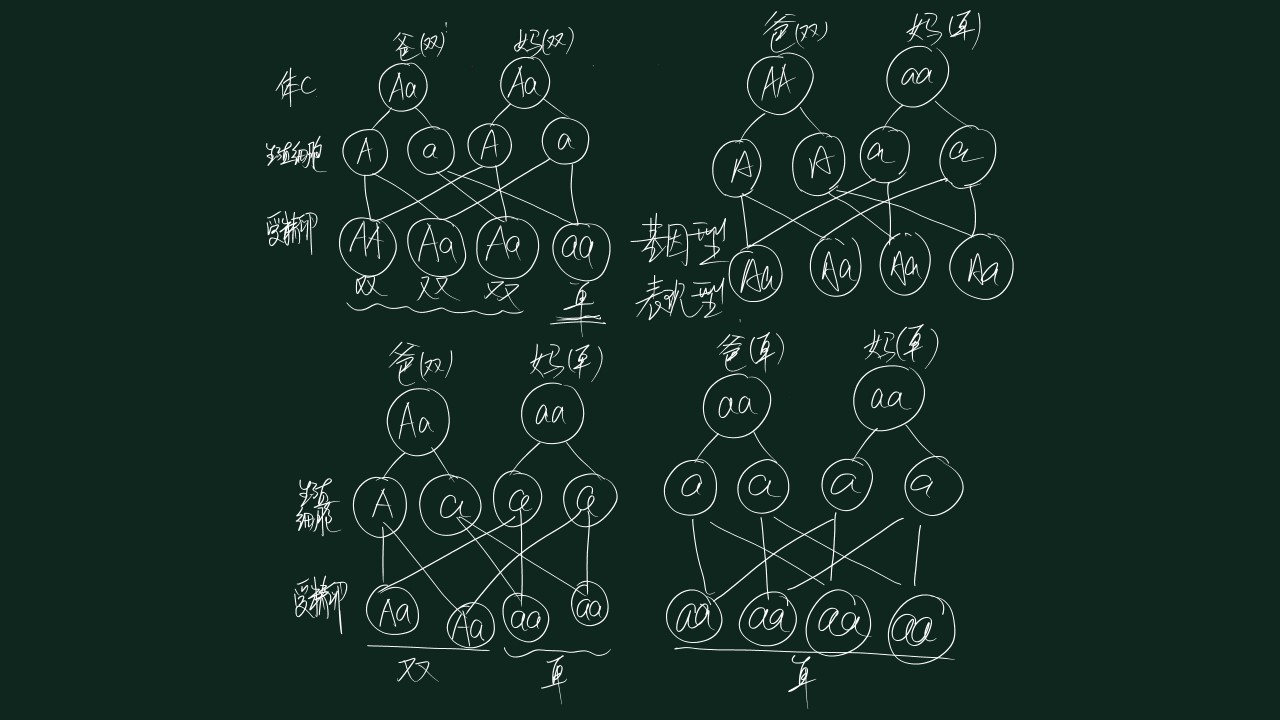 爸(双) 妈(双)
体C Aa Aa
生殖细胞 A a A a
受精卵 AA Aa Aa aa
双 双 双 单
爸(双) 妈(单)
AA aa
A A a a
基因型 Aa Aa Aa Aa
表现型
爸(双) 妈(单)
Aa aa
生殖
细胞 A a a a
受精卵 Aa Aa aa aa
双 单
爸(单) 妈(单)
aa aa
a a a a
aa aa aa aa
单